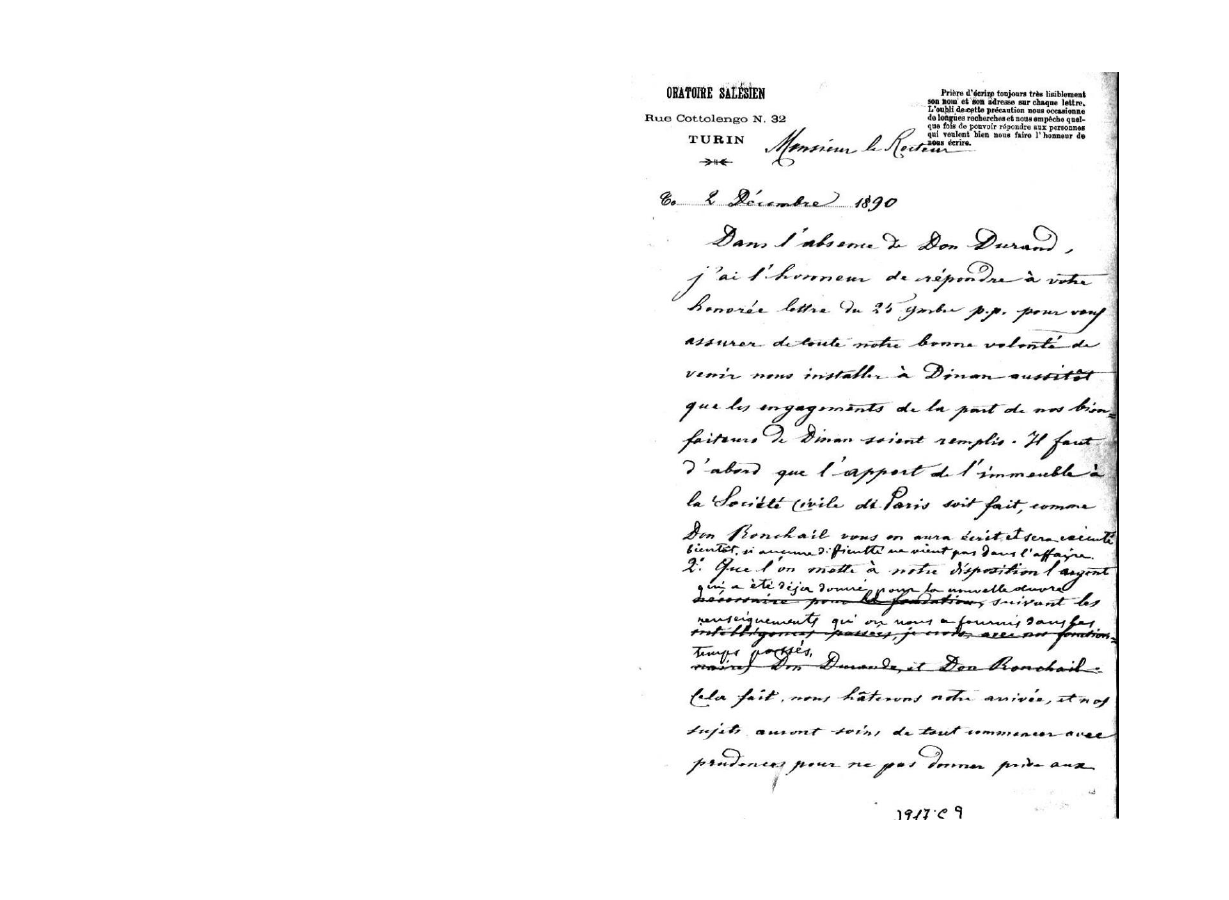 ORATOIRE SALÉSIEN
Rue Cottolengo N. 32
TURIN
Prière d'écrire toujours très lisiblement
son nom et son adresse sur chaque lettre.
L'oubli de cette précaution nous occasionne
de longues recherches et nous empêche quel-
que fois de pouvoir répondre aux personnes
qui veulent bien nous faire l'honneur de
nous écrire.
Monsieur le Recteur
2 Décembre 1890
Dans l'absence de Don Durand,
j'ai l'honneur de répondre à votre
honorée lettre du 25 9mbre p.p. pour vous
assurer de toute notre bonne volonté de
venir nous installer à Dinan aussitôt
que les engagements de la part de nos bien=
faiteurs de Dinan soient remplis. Il faut
d'abord que l'apport de l'immeuble à
la Société Civile de Paris soit fait, comme
Don Ronchail vous en aura écrit et sera exécuté
bientôt, si aucune difficulté ne vient pas dans l'affaire.
2.º Que l'on mette à notre disposition l'argent
qui a été déja donné pour la nouvelle œuvre
nécessaire pour la fondation, suivant les
renseignements qu'on nous a fournis dans les
intelligences passées, je crois, avec nos fonction=
temps passés.
naires Don Durand, et Don Ronchail.
Cela fait, nous hâterons notre arrivée, et nos
sujets auront soins de tout commencer avec
prudences pour ne pas donner prise aux